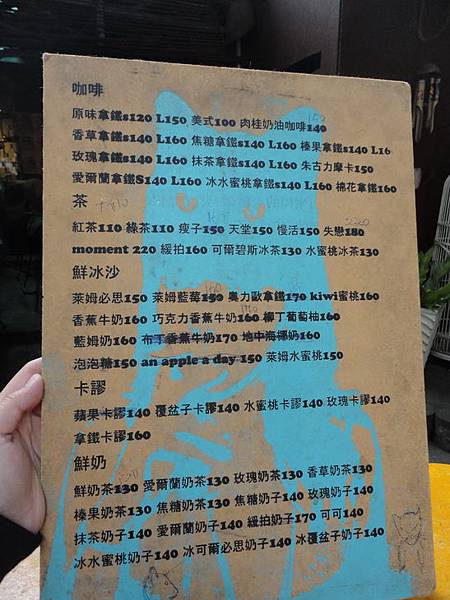 咖啡
原味拿鐵s120 L150 美式100 肉桂奶油咖啡140
香草拿鐵s140 L160 焦糖拿鐵s140 L160 榛果拿鐵s140 L16
玫瑰拿鐵s140 L160 抹茶拿鐵s140 L160 朱古力摩卡150
愛爾蘭拿鐵S140 L160 冰水蜜桃拿鐵s140 L160 棉花拿鐵160
茶
紅茶110 綠茶110 瘦子150 天堂150 慢活150 失戀180
moment 220 緩拍160 可爾碧斯冰茶130 水蜜桃冰茶130
鮮冰沙
萊姆必思150 萊姆藍莓150 奧力歐拿鐵170 kiwi蜜桃160
香蕉牛奶160 巧克力香蕉牛奶160 柳丁葡萄柚160
藍姆奶160 布丁香蕉牛奶170 地中海椰奶160
泡泡糖150 an apple a day 150 萊姆水蜜桃150
卡謬
蘋果卡謬140 覆盆子卡謬140 水蜜桃卡謬140 玫瑰卡謬140
拿鐵卡謬160
鮮奶
鮮奶茶130 愛爾蘭奶茶130 玫瑰奶茶130 香草奶茶130
榛果奶茶130 焦糖奶茶130 焦糖奶子140 玫瑰奶子140
抹茶奶子140 愛爾蘭奶子140 緩拍奶子170 可可140
冰水蜜桃奶子140 冰可爾必思奶子140 冰覆盆子奶子140